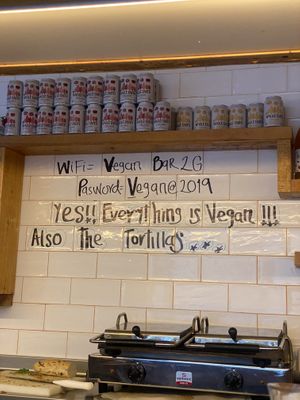 WiFi= Vegan Bar 2G
Pasword= Vegan@2019
Yes!! Everything is Vegan !!!
Also The Tortillas...